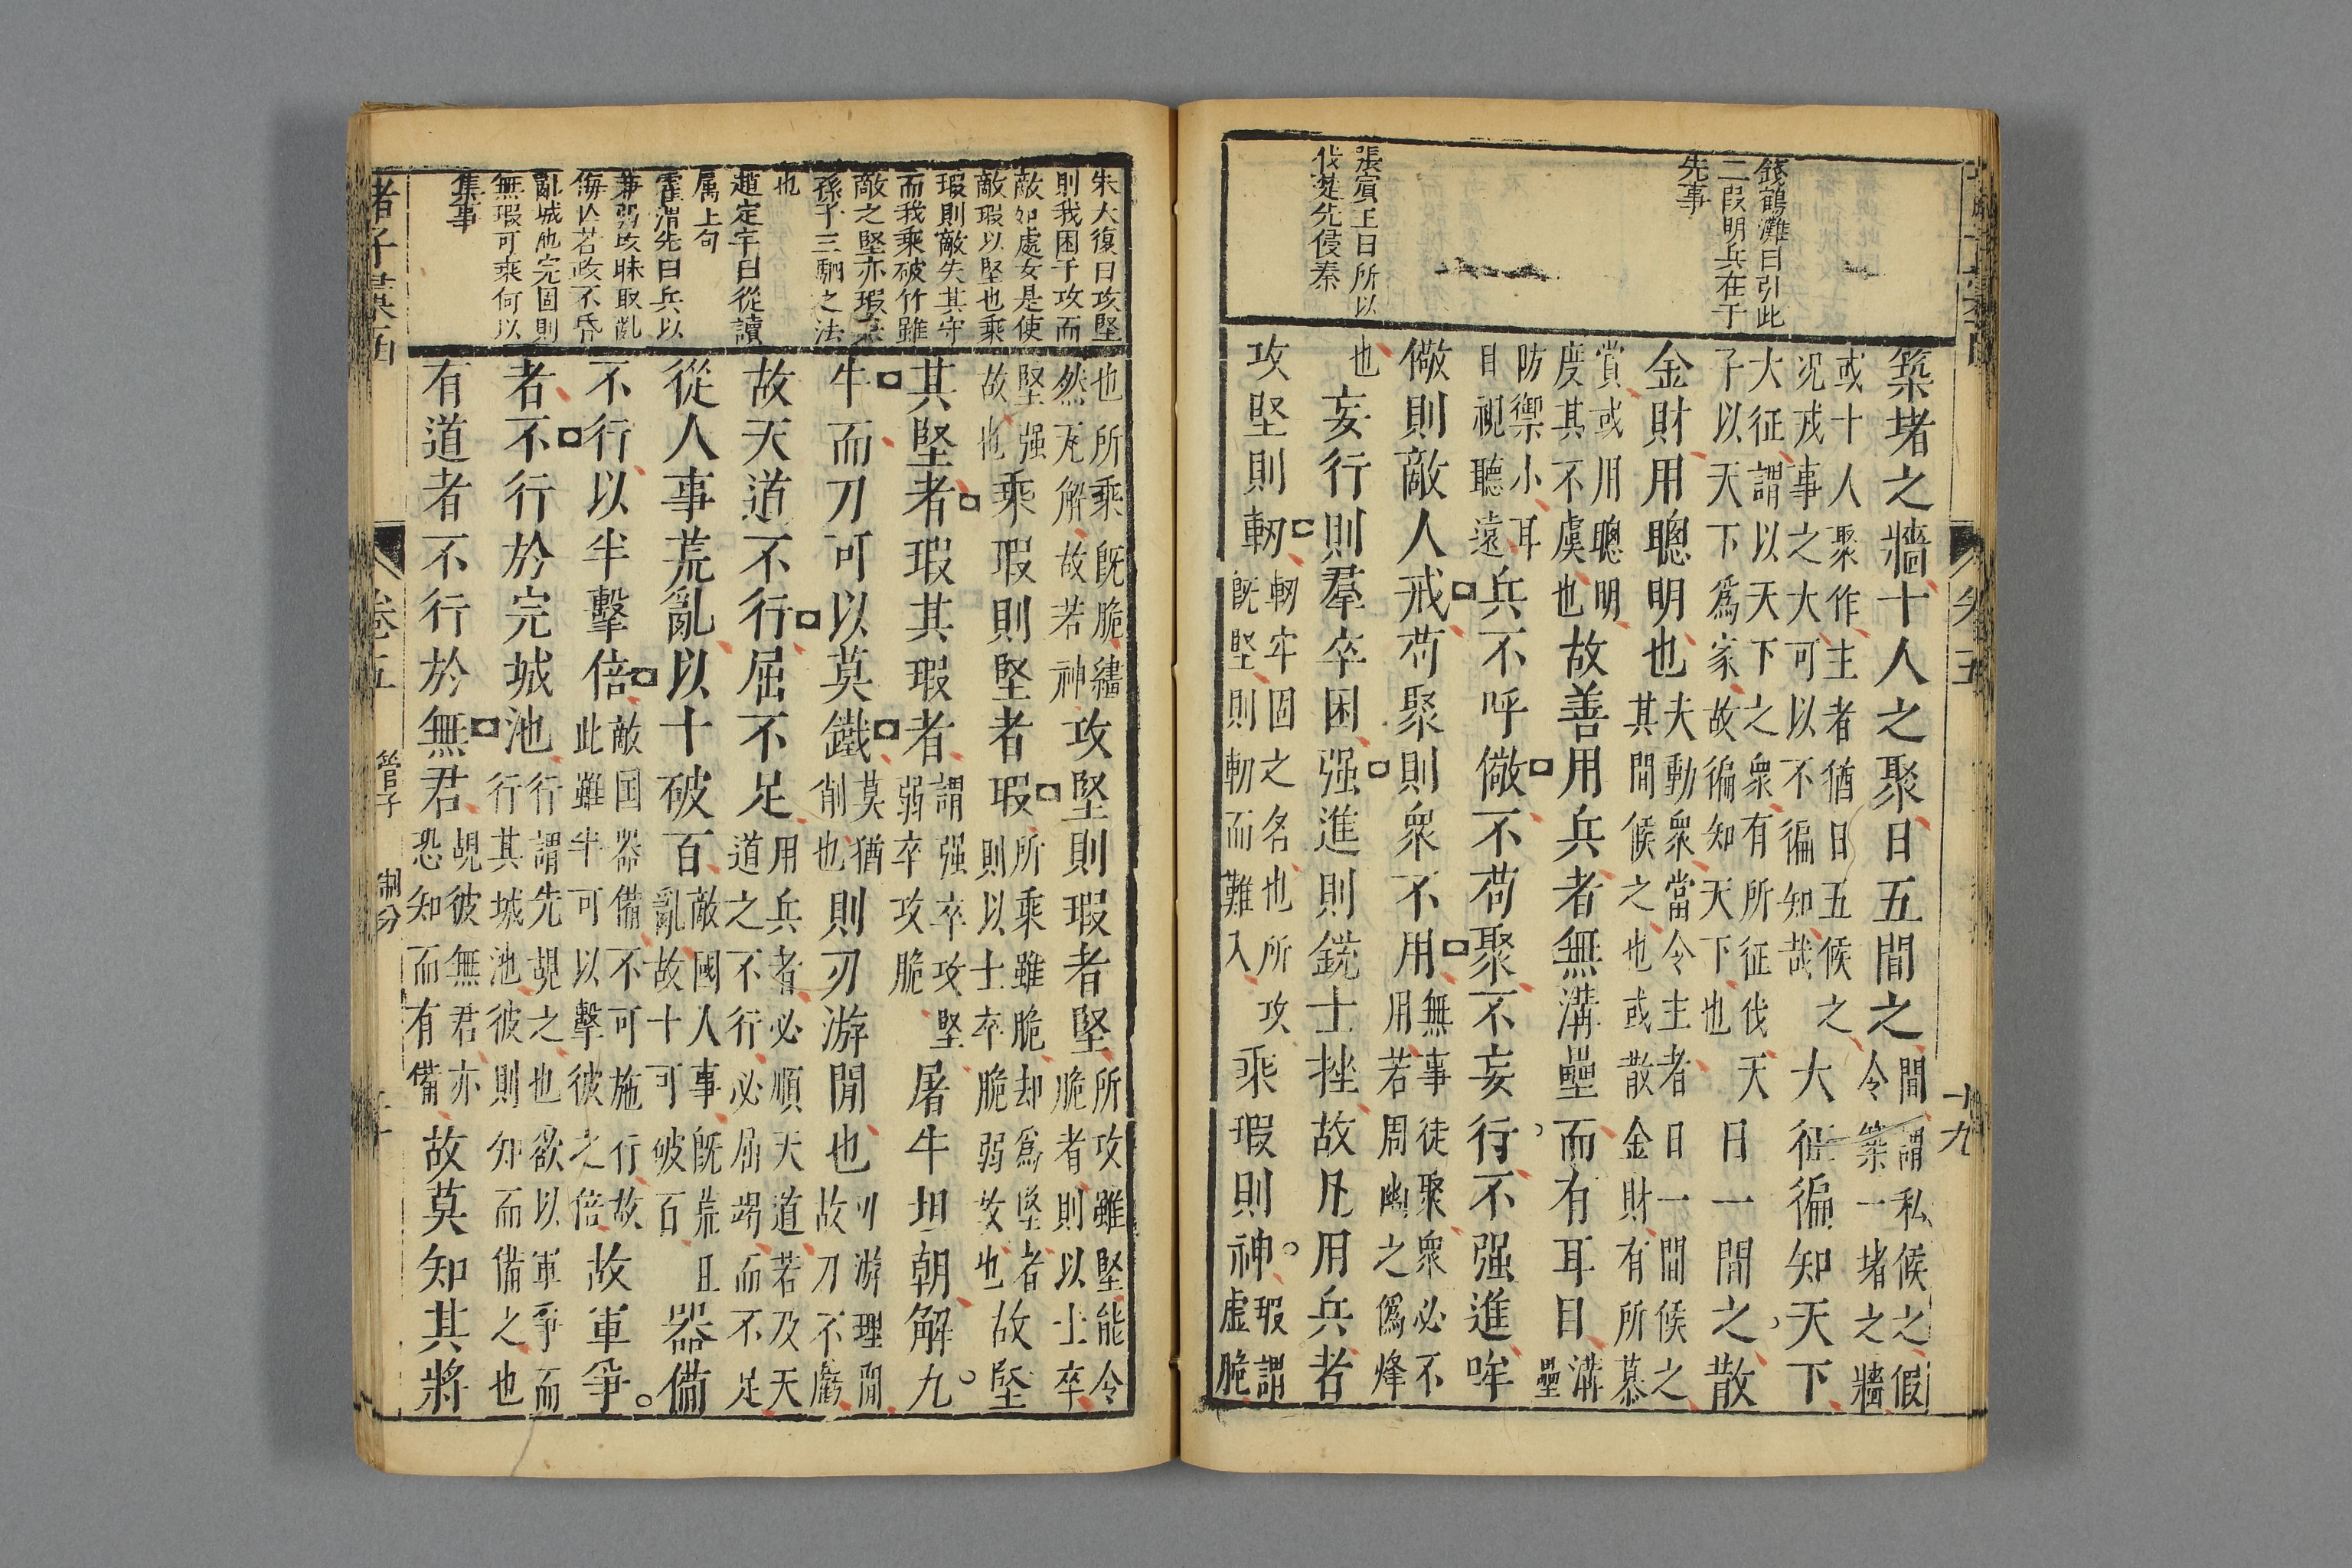 錢鶴灘曰引此
二段明兵在于
先事
張賓王曰所以
伐楚先侵秦
築堵之牆十人之聚日五間之間謂私候之假
令築一堵之牆
或十人聚作主者猶日五候之
況戎事之大可以不徧知哉大征徧知天下
大征謂以天下之衆有所征伐天
子以天下爲家故徧知天下也日一間之散
金財用聰明也夫動衆當令主者日一間候之
其間候之也或散金財有所慕
賞或用聰明
度其不虞也故善用兵者無溝壘而有耳目溝
壘
防禦小耳
目視聽遠兵不呼儆不苟聚不妄行不强進呼
儆則敵人戒苟聚則衆不用無事徒聚衆必不
用若周幽之僞烽
也妄行則羣卒困强進則銳士挫故凡用兵者
攻堅則軔軔牢固之名也所攻
既堅則軔而難入乘瑕則神瑕謂
虛脆
朱大復曰攻堅
則我困于攻而
敵如處女是使
敵瑕以堅也乘
瑕則敵失其守
而我乘破竹雖
敵之堅亦瑕矣
孫子三駟之法
也
趙定宇曰從讀
属上句
霍渭先曰兵以
兼弱攻昧取亂
侮亡若政不昏
亂城池完固則
無瑕可乘何以
集事
也所乘既脆纏
然无解故若神攻堅則瑕者堅所攻雖堅能令
脆者則以士卒
堅强
故也乘瑕則堅者瑕所乘雖脆却爲堅者
則以士卒脆弱故也故堅
其堅者瑕其瑕者謂强卒攻堅
弱卒攻脆屠牛坦朝解九
牛而刀可以莫鐵莫猶
削也則刃游間也刃游理間
故刀不虧
故天道不行屈不足用兵者必順天道若及天
道之不行必屈竭而不足
從人事荒亂以十破百敵國人事既荒且
亂故十可破百器備
不行以半擊倍敵国器備不可施行故
此雖半可以擊彼之倍故軍爭
者不行於完城池行謂先覘之也欲以軍爭而
行其城池彼則知而備之也
有道者不行於無君覘彼無君亦
恐知而有備故莫知其將
諸子彙函
卷五
管子
制分
卷五
十九